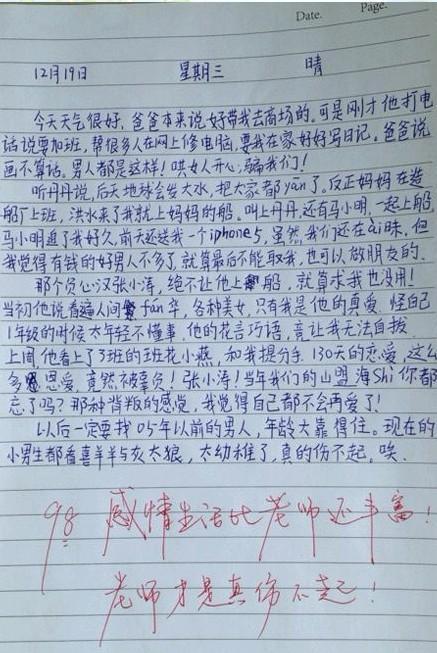 Date. Page.
12月19日 星期三 晴
今天天气很好，爸爸本来说好带我去商场的。可是刚才他打电
话说要加班，帮很多人在网上修电脑，要我在家好好写日记。爸爸说
画不算话。男人都是这样！哄女人开心，骗我们！
听丹丹说，后天地球会发大水，把大家都yan了。反正妈妈在造
船厂上班，洪水来了我就上妈妈的船。叫上丹丹，还有马小明，一起上船，
马小明追了我好久，前天还送我一个iphone5，虽然我们还在ai昧，但
我觉得有钱的好男人不多了，就算最后不能取我，也可以做朋友的。
那个负心汉张小涛，绝不让他上船，就算求我也没用！
当初他说看遍人间fan华，各种美女，只有我是他的真爱。怪自己
1年级的时候太年轻不懂事，他的花言巧语，竟让我无法自拔。
上周他看上了3班的班花小燕，和我提分手。130天的恋爱，这么
多恩爱，竟然被辜负！张小涛！当年我们的山盟海Shi你都
忘了吗？那种背叛的感觉，我觉得自己都不会再爱了！
以后一定要找05年以前的男人，年龄大靠得住。现在的
小男生都看喜羊羊与灰太狼，太幼稚了，真的伤不起，唉。
98 感情生活比老师还丰富！
老师才是真伤不起！